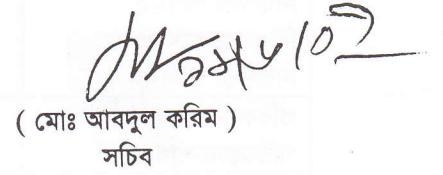 ( মোঃ আবদুল করিম )
সচিব